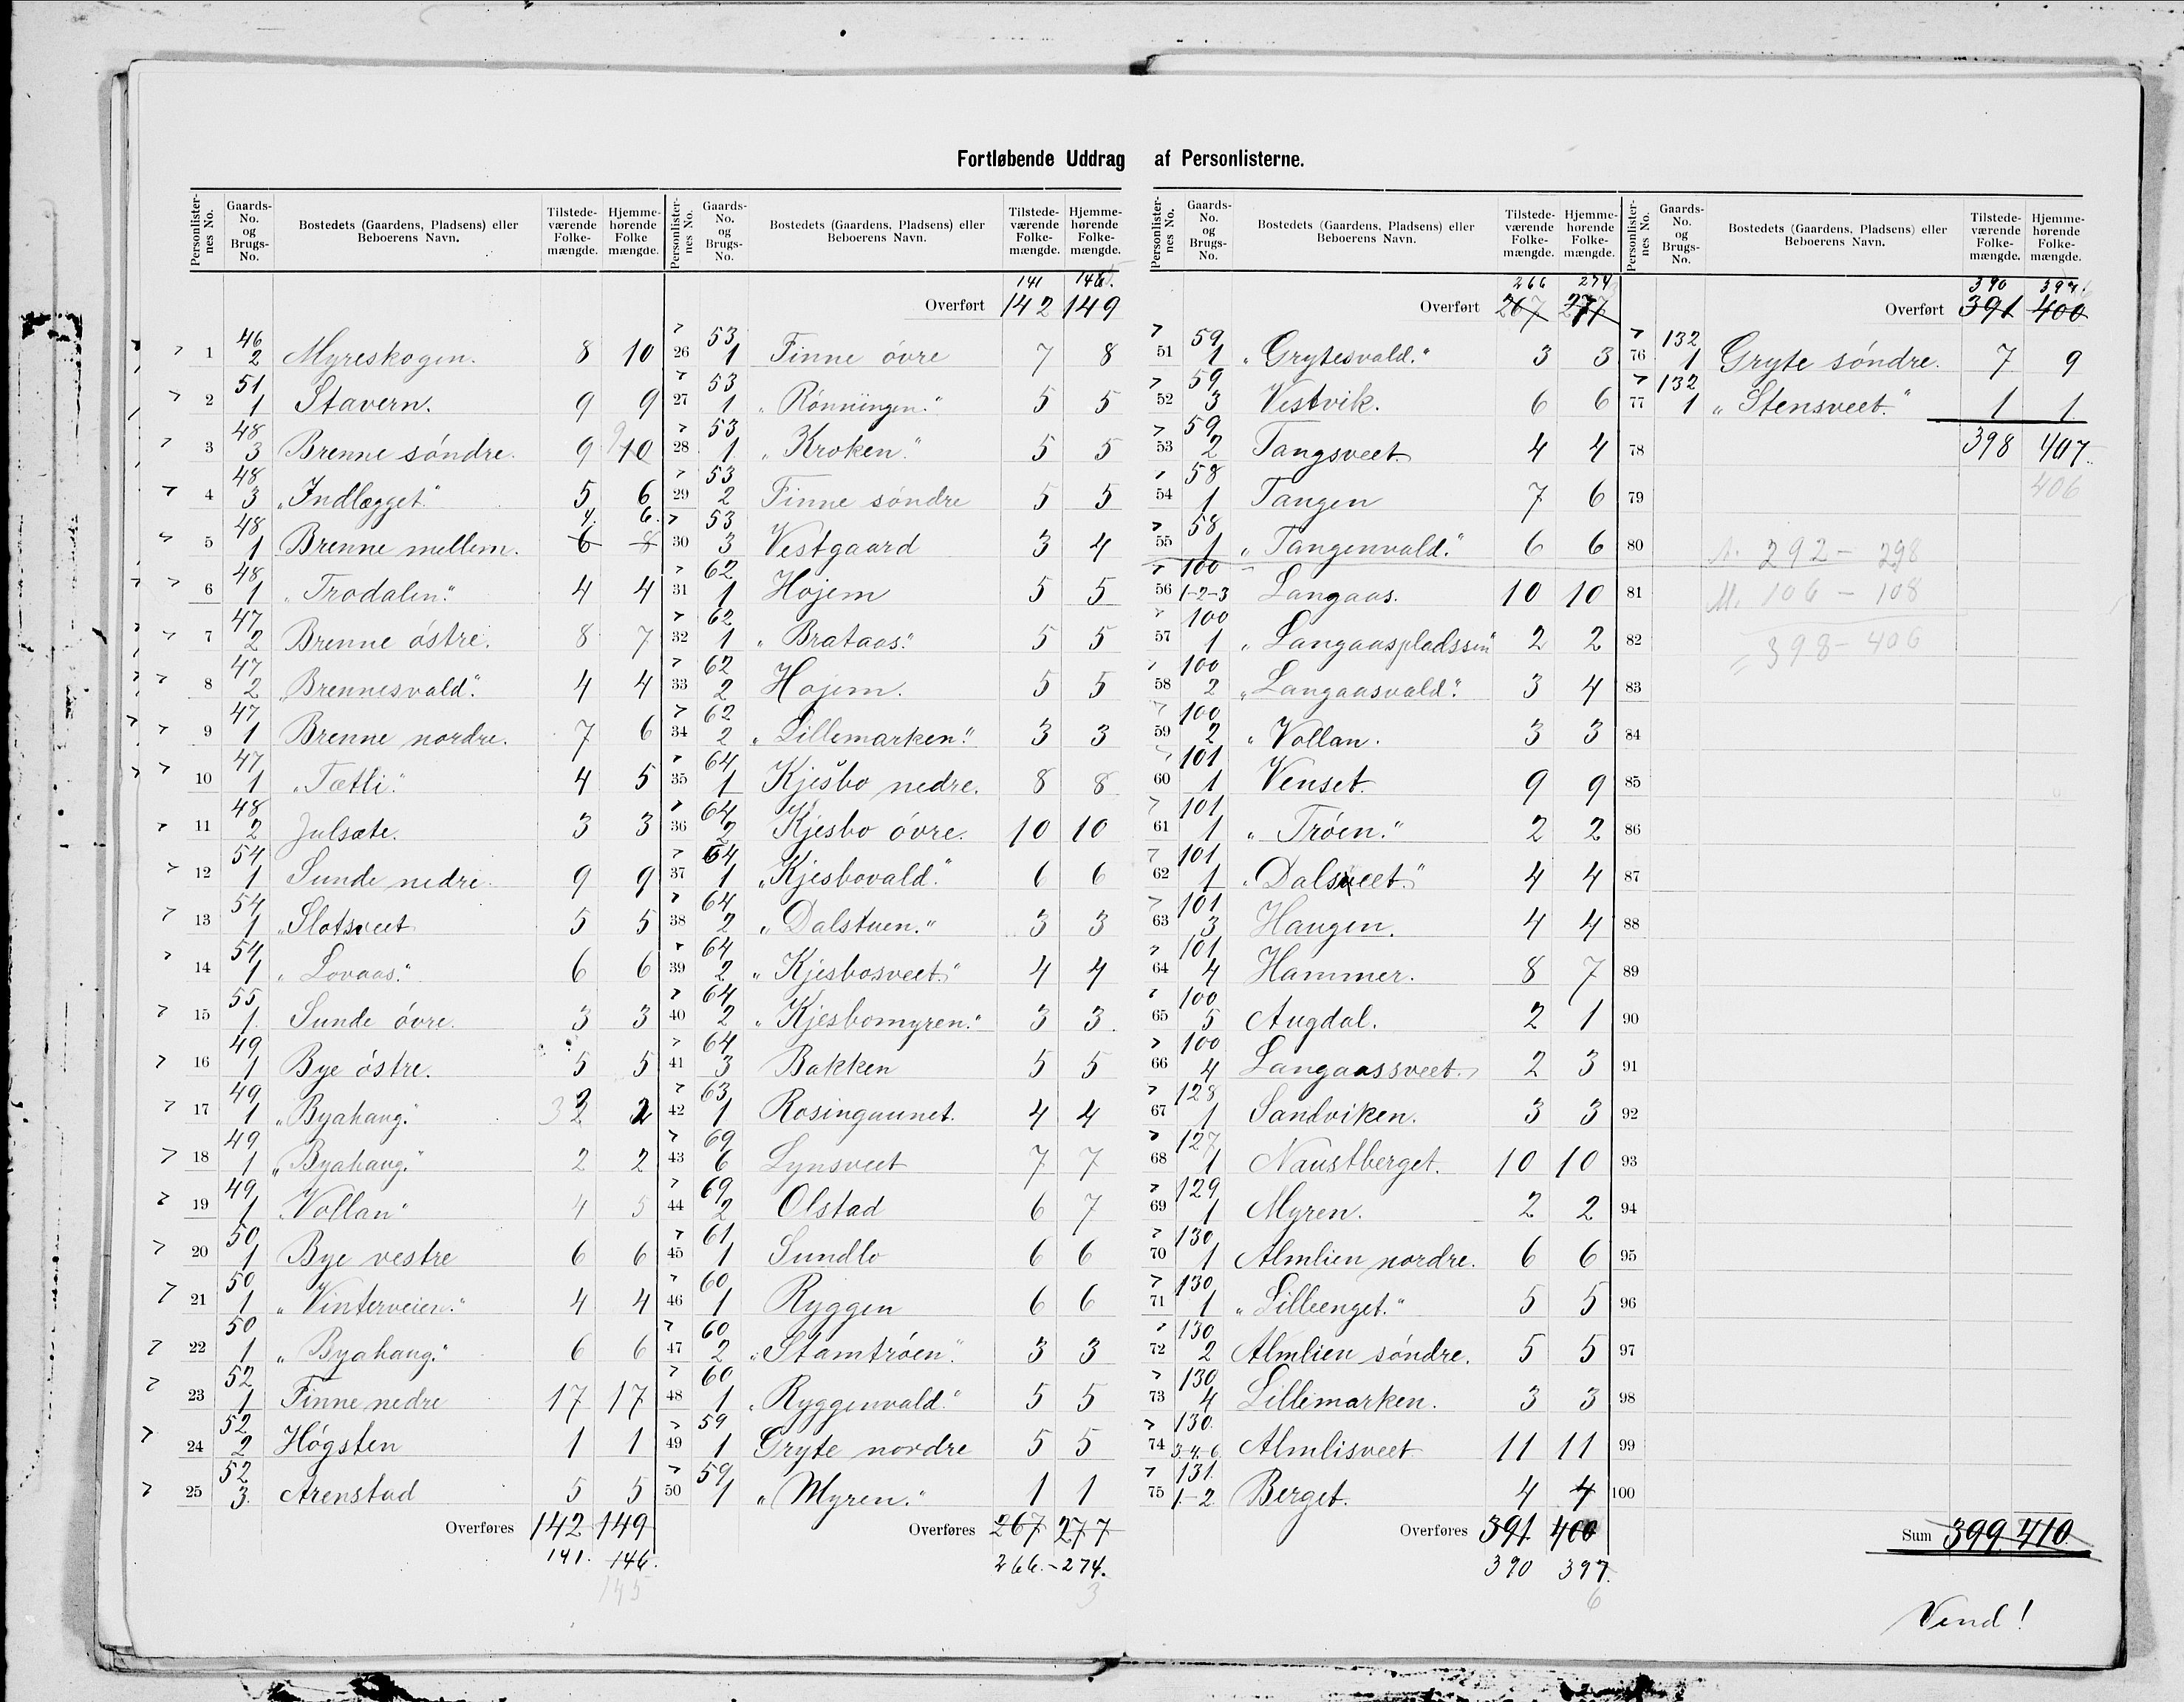 Fortløbende Uddrag af Personlisterne.
Personlisternes No. Gaards-No. og Brugs-No. Bostedets (Gaardens, Pladsens) eller Beboerens Navn. Tilstedeværende Folkemængde. Hjemmehørende Folkemængde.
1 46 2 Myreskogen. 8 10
2 51 1 Stavern. 9 9
3 48 3 Brenne søndre. 9 10 9
4 48 3 "Indlægget" 5 6
5 48 1 Brenne mellem. 6 8 4. 6.
6 48 1 "Trodalen." 4 4
7 47 2 Brenne østre. 8 7
8 47 2 "Brennesvald". 4 4
9 47 1 Brenne nordre. 7 6
10 47 1 "Tætli." 4 5
11 48 2 Julsæte. 3 3
12 54 1 Sunde nedre. 9 9
13 54 1 "Slotsveet 5 5
14 54 1 "Lovaas." 6 6
15 55 1 Sunde øvre. 3 3
16 49 1 Bye østre. 5 5
17 49 1 "Byahaug." 3 2 2
18 49 1 "Byahaug." 2 2
19 49 1 "Vollan" 4 5
20 50 1 Bye vestre 6 6
21 50 1 "Vinterveien." 4 4
22 50 1 "Byahaug." 6 6
23 52 1 Finne nedre 17 17
24 52 2 Høgsten 1 1
25 52 3. Arenstad 5 5
Overføres 142 149
141. 146.
145
Personlisternes No. Gaards-No. og Brugs-No. Bostedets (Gaardens, Pladsens) eller Beboerens Navn. Tilstedeværende Folkemængde. Hjemmehørende Folkemængde.
141 146.
Overført 142 149
26 53 1 Finne øvre 7 8
27 53 1 "Rønningen." 5 5
28 53 1. "Kroken." 5 5
29 53 2 Finne søndre 5 5
30 53 3 Vestgaard 3 4
31 62 1 Hojem 5 5
32 62 1 "Brataas." 5 5
33 62 2 Hojem. 5 5
34 62 2 "Lillemarken." 3 3
35 64 1 Kjesbo nedre. 8 8
36 64 2 Kjesbo øvre. 10 10
37 64 1 "Kjesbovald." 6 6
38 64 2 "Dalstuen." 3 3
39 64 2 "Kjesbosveet." 4 4
40 64 2 "Kjesbomyren." 3 3.
41 64 3 Bakken 5 5
42 63 1 Rosingaunet. 4 4
43 69 6 Lynsveet 7 7
44 69 2 Olstad 6 7
45 61 1 Sundlo 6 6
46 60 1 Ryggen 6 6
47 60 2 "Stamtrøen". 3 3
48 60 1 "Ryggenvald." 5 5
49 59 1 Gryte nordre 5 5
50 59 1 "Myren." 1 1
Overføres 267 277
266. - 274.
3
Personlisternes No. Gaards-No. og Brugs-No. Bostedets (Gaardens, Pladsens) eller Beboerens Navn. Tilstedeværende Folkemængde. Hjemmehørende Folkemængde.
266 274
Overført 267 277
51 59 1 "Grytesvald." 3 3
52 59 3 Vestvik. 6 6
53 59 2 Tangsveet. 4 4
54 58 1 Tangen 7 6
55 58 1 "Tangenvald." 6 6
56 100 1-2-3 Langaas. 10 10
57 100 1 "Langaaspladssen" 2 2
58 100 2 "Langaasvald". 3 4
59 100 2 "Vollan. 3 3
60 101 1 Venset. 9 9
61 101 1 "Trøen." 2 2
62 101 1 "Dalsveet." 4 4
63 101 3 Haugen. 4 4
64 101 4 Hammer. 8 7
65 100 5 Augdal. 2 1
66 100 4 Langaassveet. 2 3
67 128 1 Sandviken. 3 3
68 127 1 Naustberget. 10 10
69 129 1 Myren. 2 2
70 130 1 Almlien nordre. 6 6
71 130 1 "Lilleenget." 5 5
72 130 2 Almlien søndre. 5 5
73 130 4 Lillemarken. 3 3
74 130. 3-4-6. Almlisveet 11 11
75 131 1-2 Berget. 4 4
Overføres 391 400
390 397.
6
Personlisternes No. Gaards-No. og Brugs-No. Bostedets (Gaardens, Pladsens) eller Beboerens Navn. Tilstedeværende Folkemængde. Hjemmehørende Folkemængde.
390 397.
Overført 391 400
76 132 1 Gryte søndre. 7 9
77 132 1 "Stensveet." 1 1
78 398 407.
406
79
80 N. 292 - 298
81 M. 106 - 108
82 = 398 - 406
83
84
85
86
87
88
89
90
91
92
93
94
95
96
97
98
99
100
Sum 399 410.
Vend!